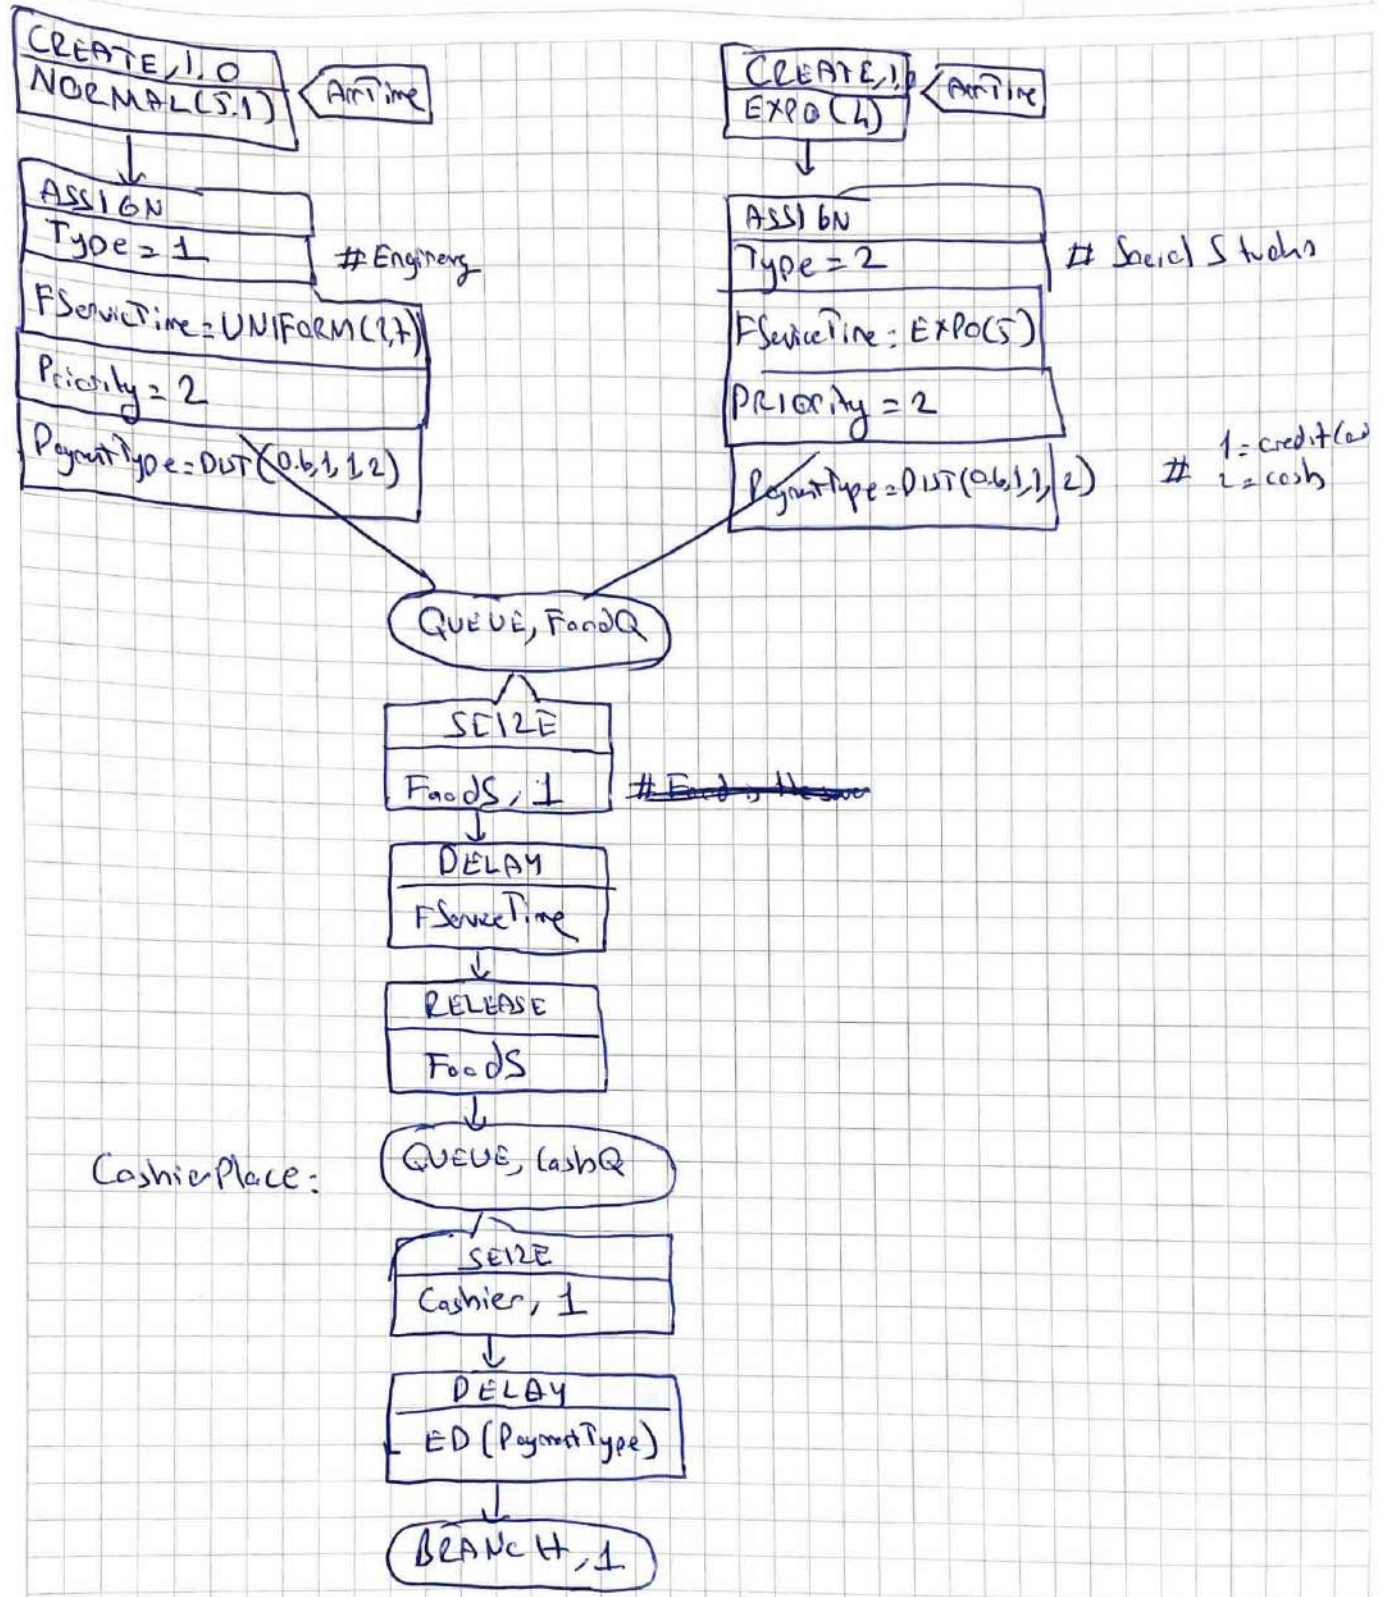 CREATE, 1, 0
NORMAL(5,1)
ArrTime
ASSIGN
Type = 1
# Enginerg
FServiceTime = UNIFORM(2,7)
Priority = 2
PaymentType = DIST(0.6,1,1,2)
CREATE, 1,
EXPO(4)
ArrTime
ASSIGN
Type = 2
# Social Studies
FServiceTime = EXPO(5)
PRIORity = 2
PaymentType = DIST(0.6,1,1,2)
# 1 = credit Card
2 = cash
QUEUE, FoodQ
SEIZE
FoodS, 1
DELAY
FServiceTime
RELEASE
FoodS
CashierPlace:
QUEUE, CashQ
SEIZE
Cashier, 1
DELAY
ED (PaymentType)
BRANCH, 1